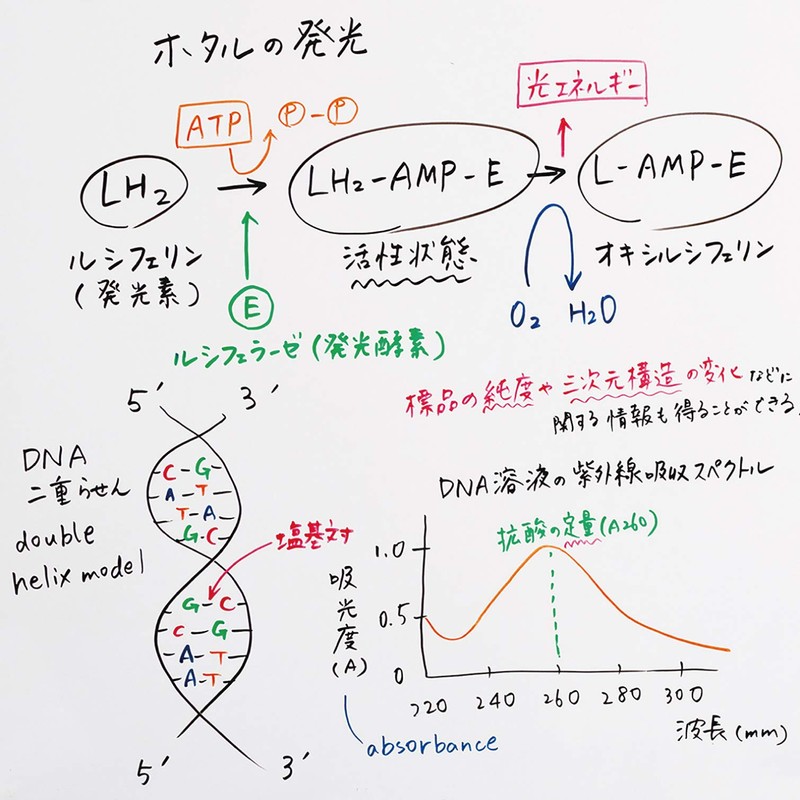 ホタルの発光
光エネルギー
ATP
P-P
LH2
LH2-AMP-E
L-AMP-E
ルシフェリン
(発光素)
活性状態
オキシルシフェリン
E
O2 H2O
ルシフェラーゼ(発光酵素)
標品の純度や三次元構造の変化などに
関する情報も得ることができる。
5′ 3′
DNA
二重らせん
double
helix model
C-G
A-T
T-A
G-C
塩基対
G-C
C-G
A-T
A-T
5′ 3′
DNA溶液の紫外線吸収スペクトル
核酸の定量(A260)
吸光度(A)
1.0
0.5
0
220 240 260 280 300
波長(mm)
absorbance